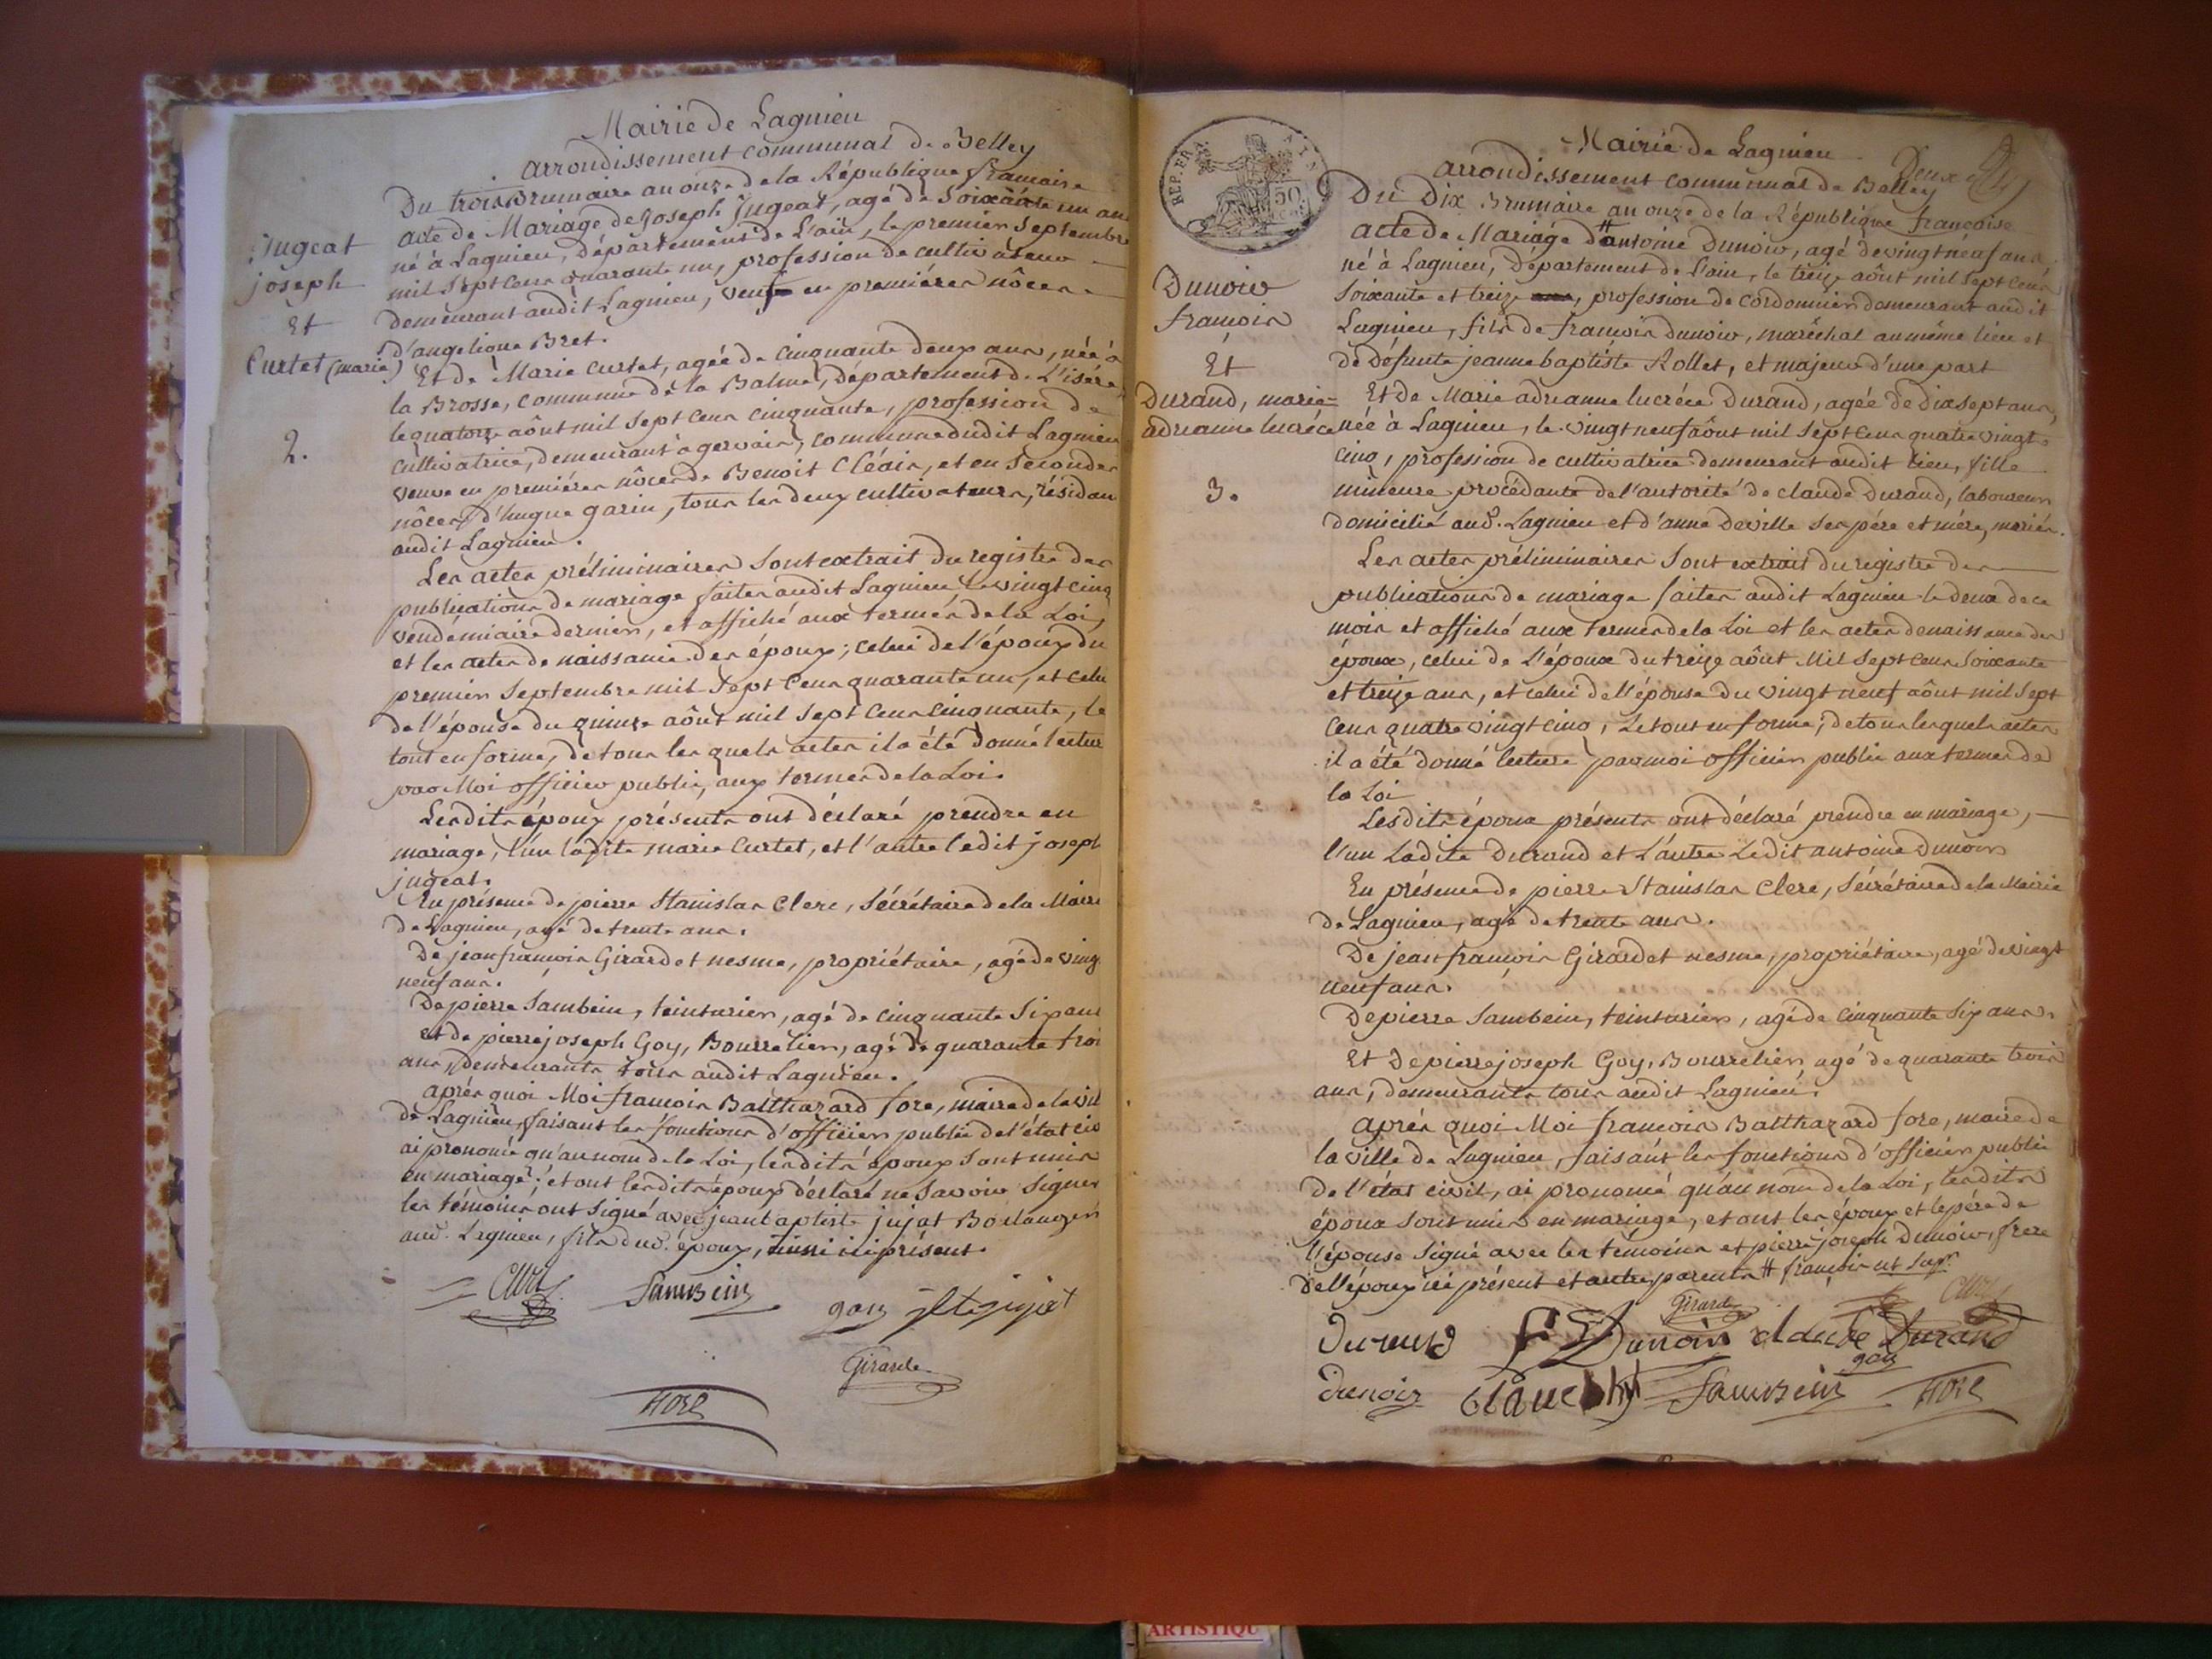 Mairie de Lagnieu
arrondissement communal de Belley
Du trois Brumaire an onze de la République francaise
acte de Mariage de Joseph Jugeat, agé de Soixante un an
né à Lagnieu, département de L'ain, le premier Septembre
mil Sept Cens quarante un, profession de cultivateur
demeurant audit Lagnieu, veuf en premiéres nôces
d'angelique Bret.
Jugeat
joseph
Et
Curtet (marie)
2.
Et de Marie Curtet, agée de Cinquante deux ans, née à
la Brosse, Commune de la Balme, département de L'isére
le quatorze aôut mil Sept Cens Cinquante, profession de
Cultivatrice, demeurant à gervais, Commune dudit Lagnieu
veuve en premiéres nôces de Benoit Cléair, et en Secondes
nôces d'hugue garin, tous les deux cultivateurs, résidan
audit Lagnieu.
Les actes préliminaires Sont extrait du registre des
publications de mariage faites audit Lagnieu le vingt cinq
vendémiaire dernier, et affiché aux termes de la Loi,
et les actes de naissance des époux; celui de l'époux du
premier Septembre mil Sept Cens quarante un, et celu
de l'épouse du quinze aôut mil Sept Cens Cinquante, le
tout en forme, de tous les quels actes il a été donné lecture
par Moi officier public, aux termes de la Loi.
Lesdits époux présents ont déclaré prendre en
mariage, l'un ladite marie Curtet, et l'autre ledit joseph
jugeat.
En présence de pierre Stanislas Clerc, Sécrétaire de la Mairi
de Lagnieu, agé de trente ans.
De jean francois Girardet nesme, propriétaire, agé de ving
neuf ans.
De pierre Sambein, teinturier, agé de cinquante Six ans
et de pierre joseph Goy, Bourrelier, agé de quarante troi
ans, demeurants tous audit Lagnieu.
aprés quoi Moi francois Balthazard fore, maire de la vil
de Lagnieu, faisant les fonctions d'officier public de l'état civ
ai prononcé qu'au nom de la Loi, lesdits époux Sont unis
en mariage; et ont lesdits époux déclaré ne Savoir Signer
les témoins ont Signé avec jean baptiste jujat Boulanger
aud. Lagnieu, fils dud. époux, aussi ici présent.
Sambein
goy
Girarde
fore
REP. FRA.
50
Mairie de Lagnieu
Deux
arrondissement communal de Belley
Du Dix Brumaire an onze de la République francoise
acte de Mariage d'# antoine Dunoir, agé de vingt neuf ans
né à Lagnieu, Département de L'ain, le treize aôut mil Sept Cens
Soixante et treize, profession de Cordonnier demeurant audit
Lagnieu, fils de francois dunoir, maréchal au même lieu et
de défunte jeanne baptiste Rollet, et majeur d'une part
Dunoir
francois
Et
Durand, marie
adrianne lucréce
3.
Et de Marie adrianne lucréce Durand, agée de dix sept ans,
née à Lagnieu, le vingt neuf aôut mil Sept Cens quatre vingt
cinq, profession de cultivatrice demeurant audit lieu, fille
mineure procédante de l'autorité de claude Durand, laboureur
domicilié aud. Lagnieu et d'anne Deville ses pére et mére, mariés.
Les actes préliminaires Sont extrait du registre des
publications de mariage faites audit Lagnieu le deux de ce
mois et affiché aux termes de la Loi et les actes de naissance des
époux, celui de L'époux du treize aôut Mil Sept Cens Soixante
et treize ans, et celui de l'épouse du vingt neuf aôut mil Sept
Cens quatre vingt cinq, Le tout en forme; de tous lesquels actes
il a été donné lecture par moi officier public aux termes de
la Loi
Lesdits époux présents ont déclaré prendre en mariage,
l'un Ladite Durand et L'autre Ledit antoine Dunoir
En présence de pierre Stanislas Clerc, Sécrétaire de la Mairie
de Lagnieu, agé de trente ans.
De jean francois Girardet nesme, propriétaire, agé de vingt
neuf ans.
De pierre Sambein, teinturier, agé de cinquante Six ans.
Et De pierre joseph Goy, Bourrelier, agé de quarante trois
ans, demeurants tous audit Lagnieu.
aprés quoi Moi francois Balthazard fore, maire de
la ville de Lagnieu, faisant les fonctions d'officier public
de l'état civil, ai prononcé qu'au nom de la Loi, lesdits
époux Sont unis en mariage, et ont les époux et le pére de
l'épouse Signé avec les témoins et pierre joseph Dunoir, frere
de l'époux ici présent et autres parents # francois ut Supr.
Girarde
Durand
Dunoir
claude Durand
goy
dunoir
Sambein
fore
ARTISTIQU